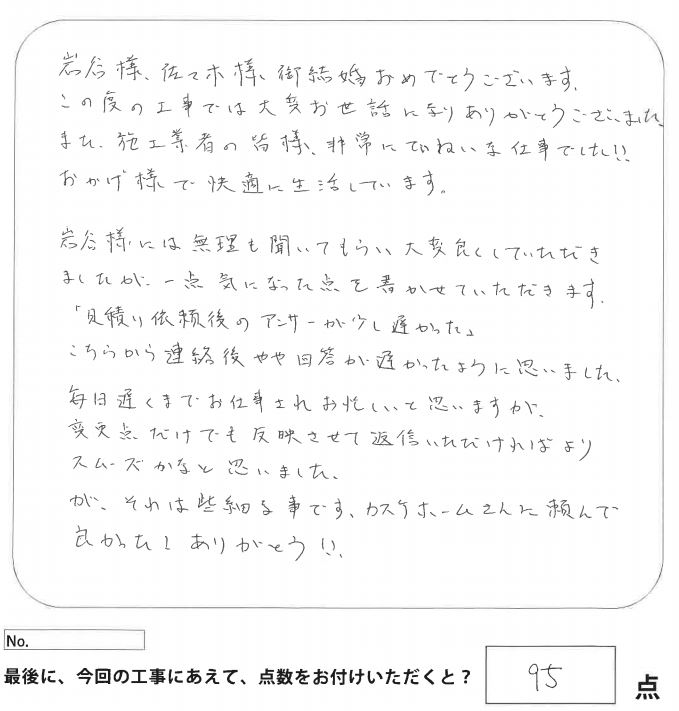 岩谷様、佐々木様、御結婚おめでとうございます。
この度の工事では大変お世話になりありがとうございました。
また、施工業者の皆様、非常にていねいな仕事でした!!
おかげ様で快適に生活しています。
岩谷様には無理も聞いてもらい大変良くしていただき
ましたが、一点気になった点を書かせていただきます。
「見積り依頼後のアンサーが少し遅かった」
こちらから連絡後やや回答が遅かったように思いました。
毎日遅くまでお仕事されお忙しいと思いますが、
変更点だけでも反映させて返信いただければより
スムーズかなと思いました。
が、それは些細な事です、カスケホームさんに頼んで
良かった!ありがとう!!
No.
最後に、今回の工事にあえて、点数をお付けいただくと?
95 点